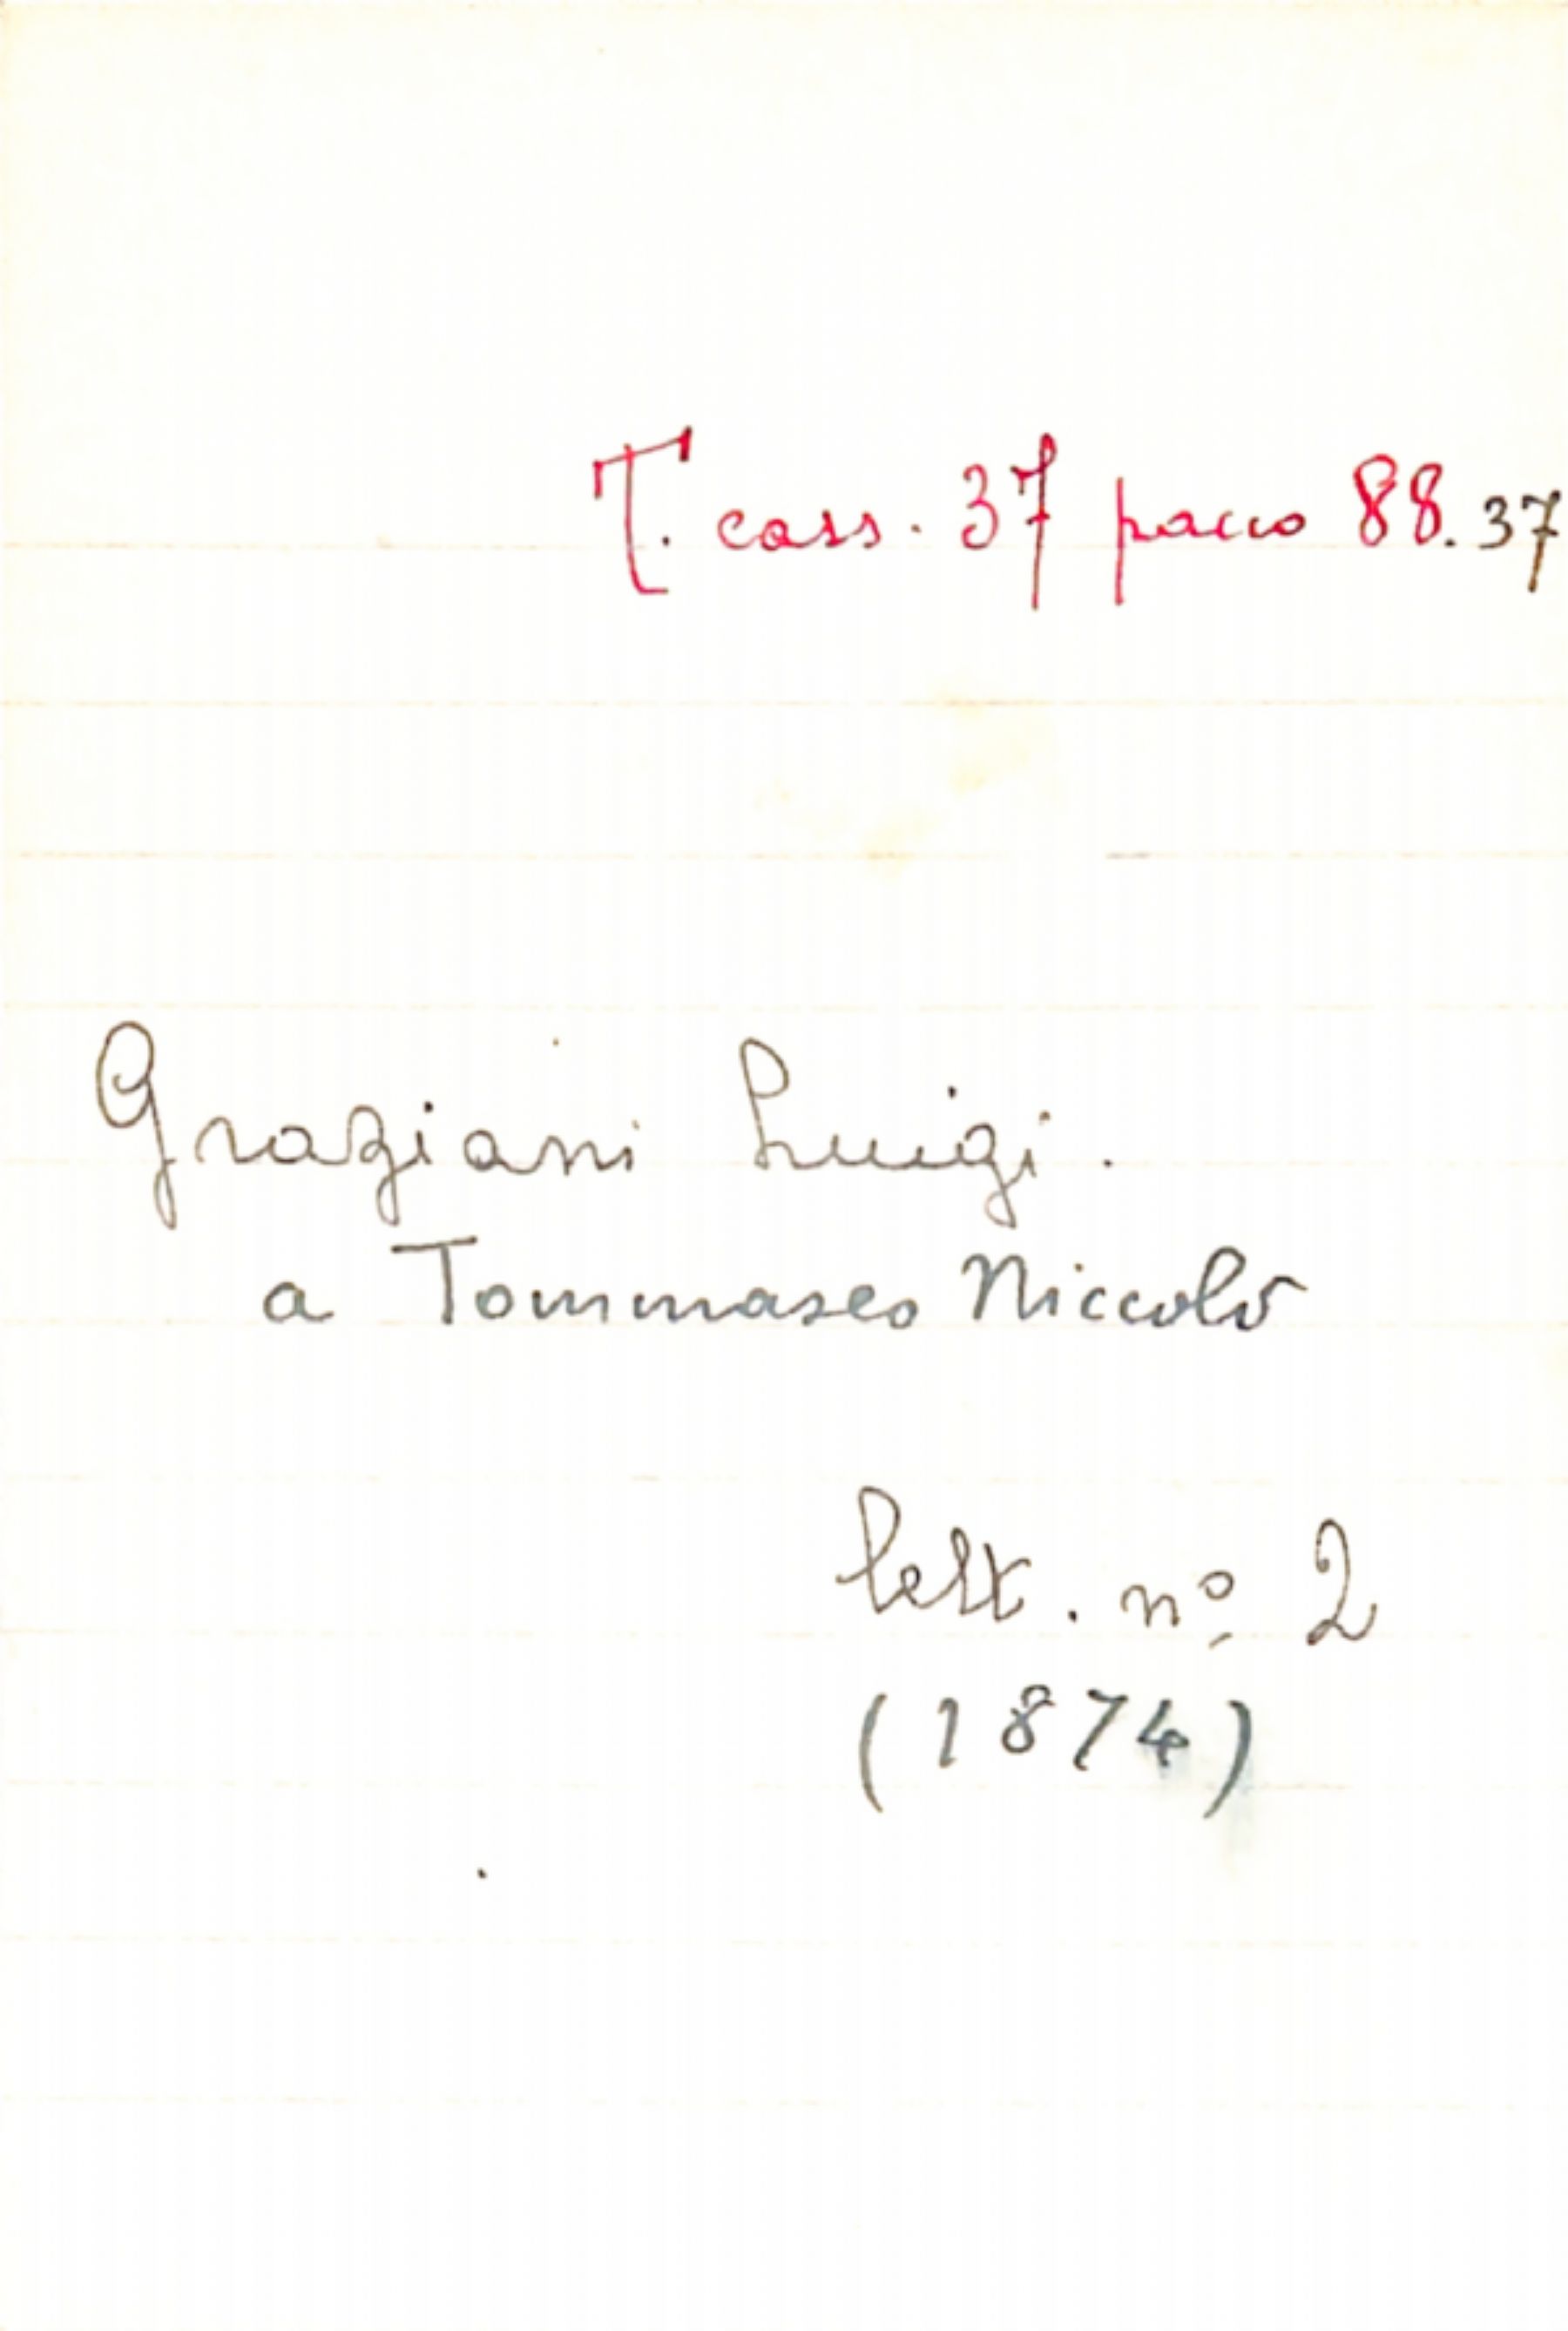 T. cass. 37 pacco 88.37
Graziani Luigi.
a Tommaseo Niccolò
lett. nº 2
(1874)